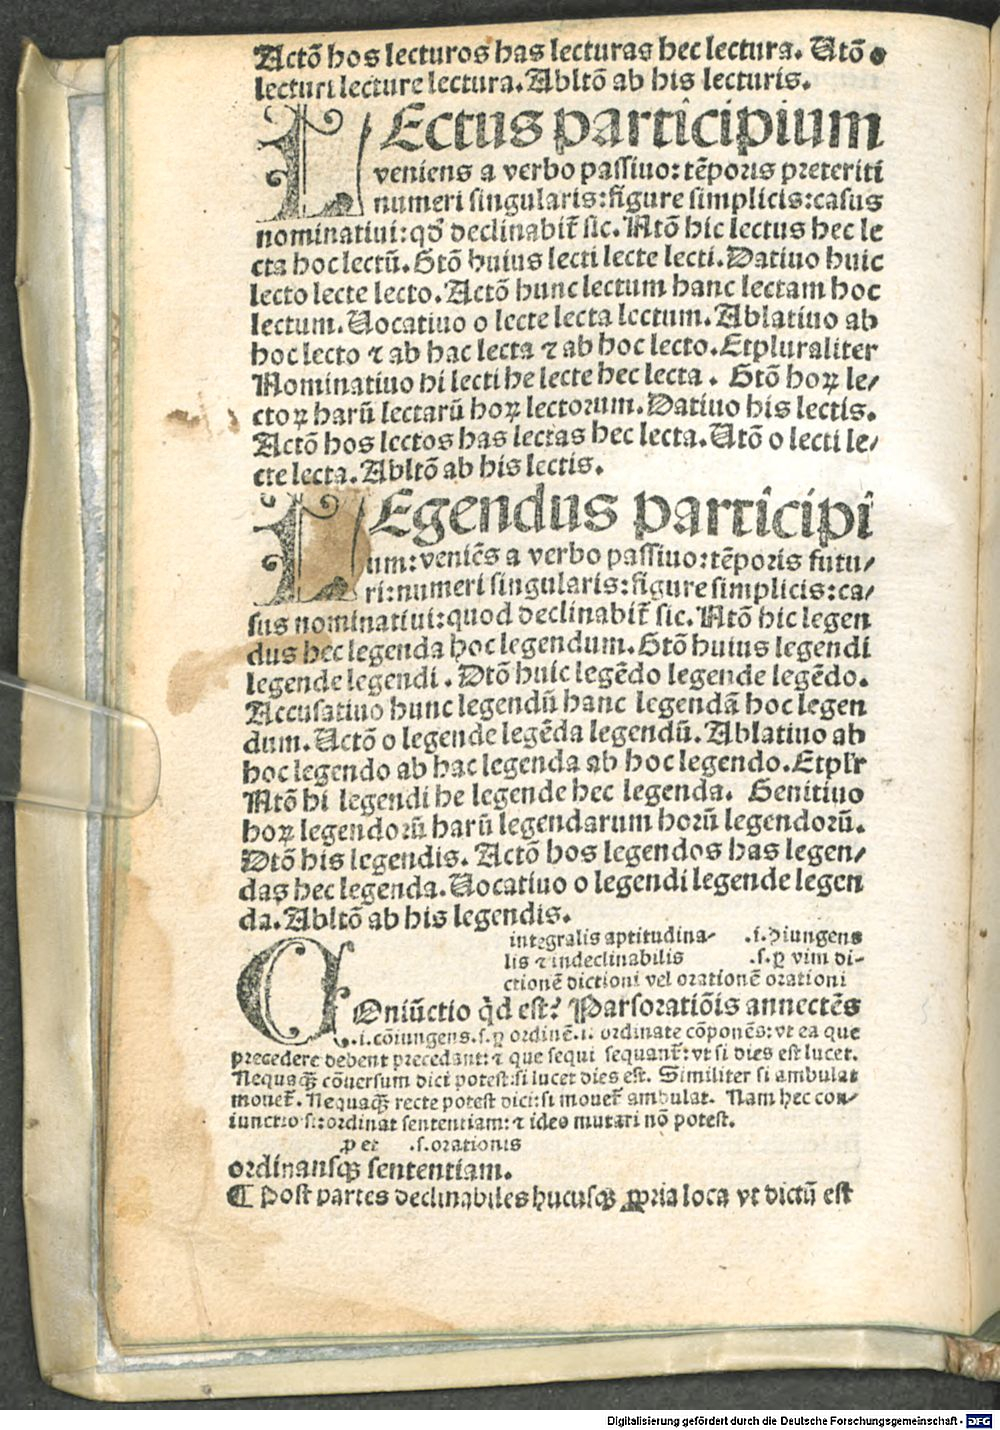 Actō hos lecturos has lecturas hec lectura. Utō o
lecturi lecture lectura. Abltō ab his lecturis.
LEctus participium
veniens a verbo passiuo: tēporis preteriti
numeri singularis: figure simplicis: casus
nominatiui: qđ declinabit̄ sic. Ntō hic lectus hec le
cta hoc lectū. Gtō huius lecti lecte lecti. Datiuo huic
lecto lecte lecto. Actō hunc lectum hanc lectam hoc
lectum. Uocatiuo o lecte lecta lectum. Ablatiuo ab
hoc lecto ⁊ ab hac lecta ⁊ ab hoc lecto. Et pluraliter
Nominatiuo hi lecti he lecte hec lecta. Gtō hoꝝ le/
ctoꝝ harū lectarū hoꝝ lectorum. Datiuo his lectis.
Actō hos lectos has lectas hec lecta. Utō o lecti le/
cte lecta. Abltō ab his lectis.
LEgendus participi
um: veniēs a verbo passiuo: tēporis futu/
ri: numeri singularis: figure simplicis: ca/
sus nominatiui: quod declinabit̄ sic. Ntō hic legen
dus hec legenda hoc legendum. Gtō huius legendi
legende legendi. Dtō huic legēdo legende legēdo.
Accusatiuo hunc legendū hanc legendā hoc legen
dum. Uctō o legende legēda legendū. Ablatiuo ab
hoc legendo ab hac legenda ab hoc legendo. Et plr̄
Ntō hi legendi he legende hec legenda. Genitiuo
hoꝝ legendorū harū legendarum horū legendorū.
Dtō his legendis. Actō hos legendos has legen/
das hec legenda. Uocatiuo o legendi legende legen
da. Abltō ab his legendis.
integralis aptitudina- .i. ꝯiungens
lis ⁊ indeclinabilis .s. ꝑ vim di-
ctionē dictioni vel orationē orationi
COniūctio qđ est? Pars oratiōis annectēs
.i. cōiungens .s. ꝑ ordinē .i. ordinate cōponēs: vt ea que
precedere debent precedant: ⁊ que sequi sequant̄: vt si dies est lucet.
Nequaꝙ̃ cōuersum dici potest: si lucet dies est. Similiter si ambulat
mouet̄. Nequaꝙ̃ recte potest dici: si mouet̄ ambulat. Nam hec con/
iunctio si: ordinat sententiam: ⁊ ideo mutari nō potest.
ꝑ et .s. orationis
ordinansqꝫ sententiam.
¶ Post partes declinabiles hucusqꝫ ꝓpria loca vt dictū est
Digitalisierung gefördert durch die Deutsche Forschungsgemeinschaft - DFG